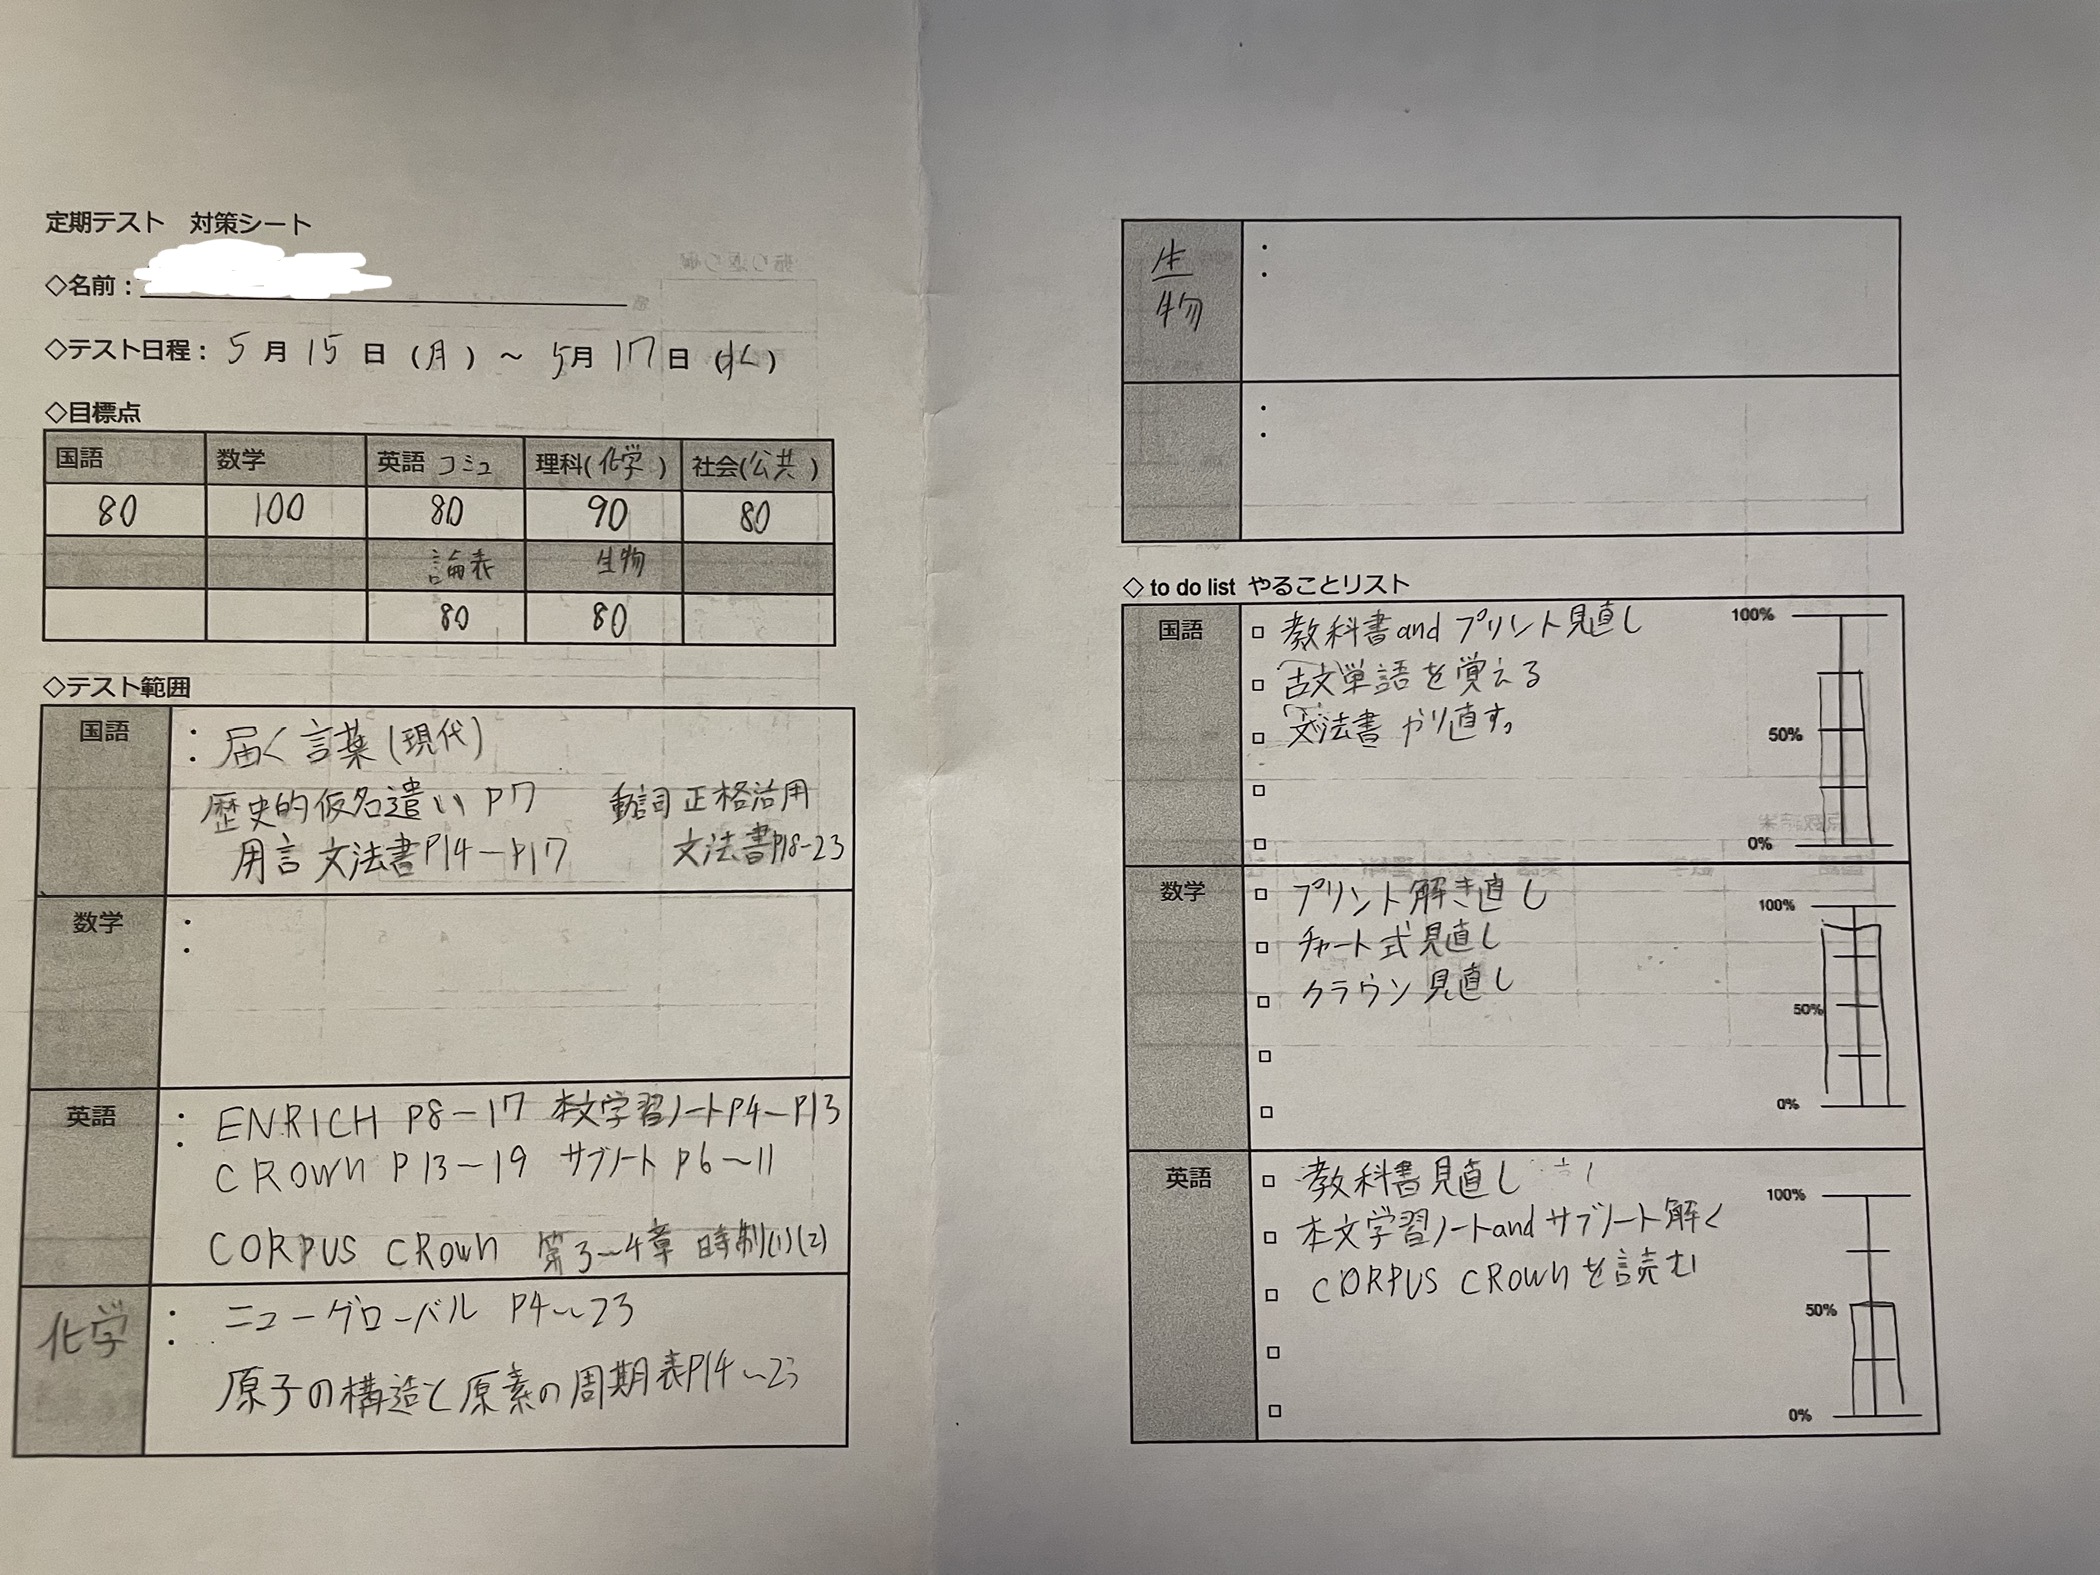 定期テスト 対策シート
◇名前：
◇テスト日程： 5月15日（月）～5月17日（水）
◇目標点
国語 数学 英語 コミュ 理科(化学) 社会(公共)
80 100 80 90 80
論表 生物
80 80
◇テスト範囲
国語
：届く言葉(現代)
歴史的仮名遣い P7 動詞 正格活用
用言 文法書P14ーP17 文法書P18-23
数学
：
英語
：ENRICH P8－17 本文学習ノートP4ーP13
CROWN P13～19 サブノート P6～11
CORPUS CROWN 第3～4章 時制(1)(2)
化学
：ニューグローバル P4～23
原子の構造と原素の周期表P14～23
生物
：
：
◇ to do list やることリスト
国語
□ 教科書and プリント見直し
□ 古文単語を覚える
□ 文法書 やり直す。
□
□
100%
50%
0%
数学
□ プリント解き直し
□ チャート式見直し
□ クラウン見直し
□
□
100%
50%
0%
英語
□ 教科書見直し
□ 本文学習ノートandサブノート解く
□ CORPUS CROWNを読む
□
□
100%
50%
0%